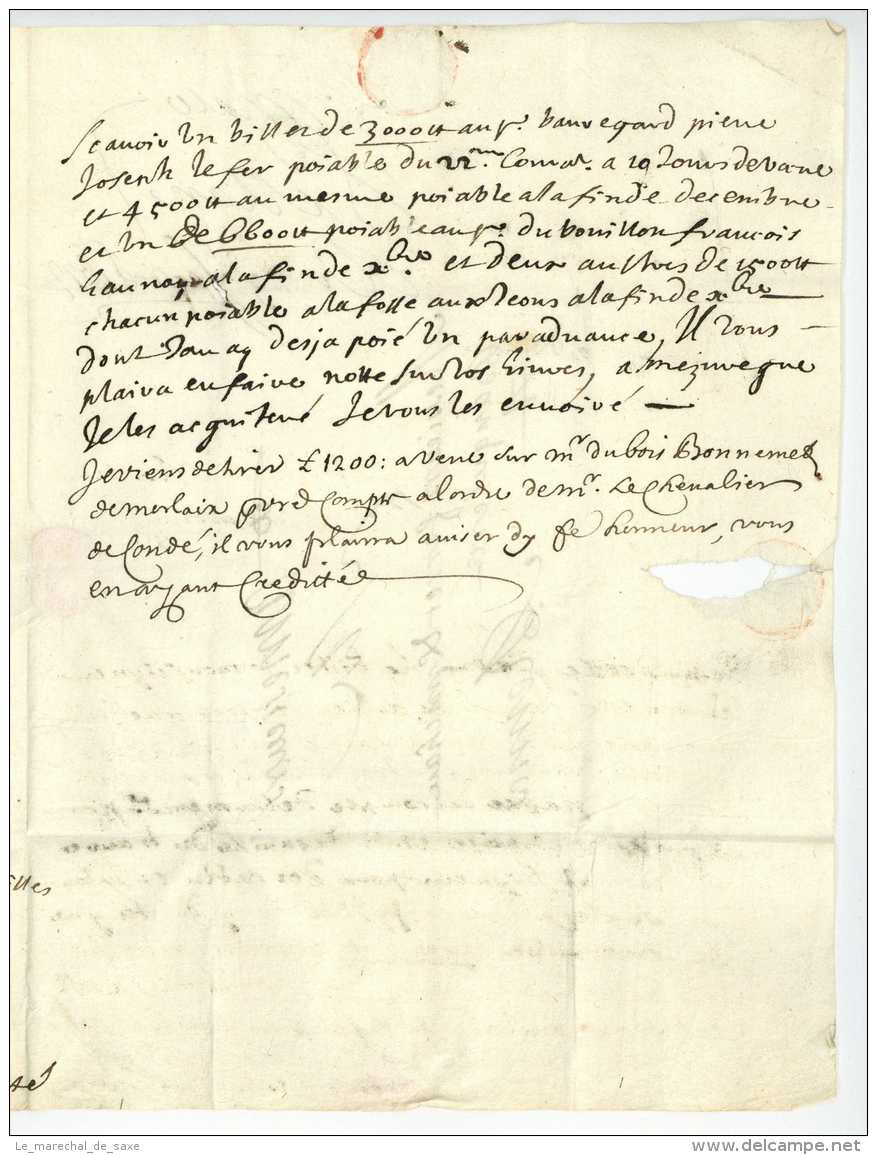 Scavoir Un billet de 3000tt au Sr. bauregard pierre
Joseph lefer poiable du 22me Couran. a 10 Jours de vane
et 4500tt au mesme poiable a la fin de decembre
et Un de 6600tt poiable au Sr. du bouillon francois
haunay a la fin de xbre et deux austres de 1500tt
chacun poiable a la fosse aux leons a la fin de xbre
dont Jan ay desja poié Un par advance, Il vous
plaira en faire notte sur vos livres, a mezure que
Je les acquiteré Je vous les envoiré
Je viens de tirer £1200: a vene sur mr. dubois Bonnemez
de morlaix pr vre Compte a lordre de mr. Le Chevalier
de Condé, il vous plaira aviser dy fe honneur, vous
en ayant Creditté
lles
Le_marechal_de_saxe
www.delcampe.net